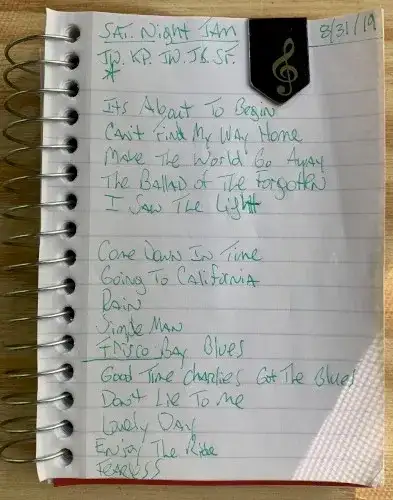 SAT. Night JAM
8/31/19
JW. KP. JW. JB. ST.
*
Its About To Begin
Can't Find My Way Home
Make The World Go Away
The Ballad of The Forgotten
I Saw The Light
Come Down In Time
Going To California
Rain
Simple Man
Frisco Bay Blues
Good Time Charlies Got The Blues
Don't Lie To Me
Lovely Day
Enjoy The Ride
Fearless